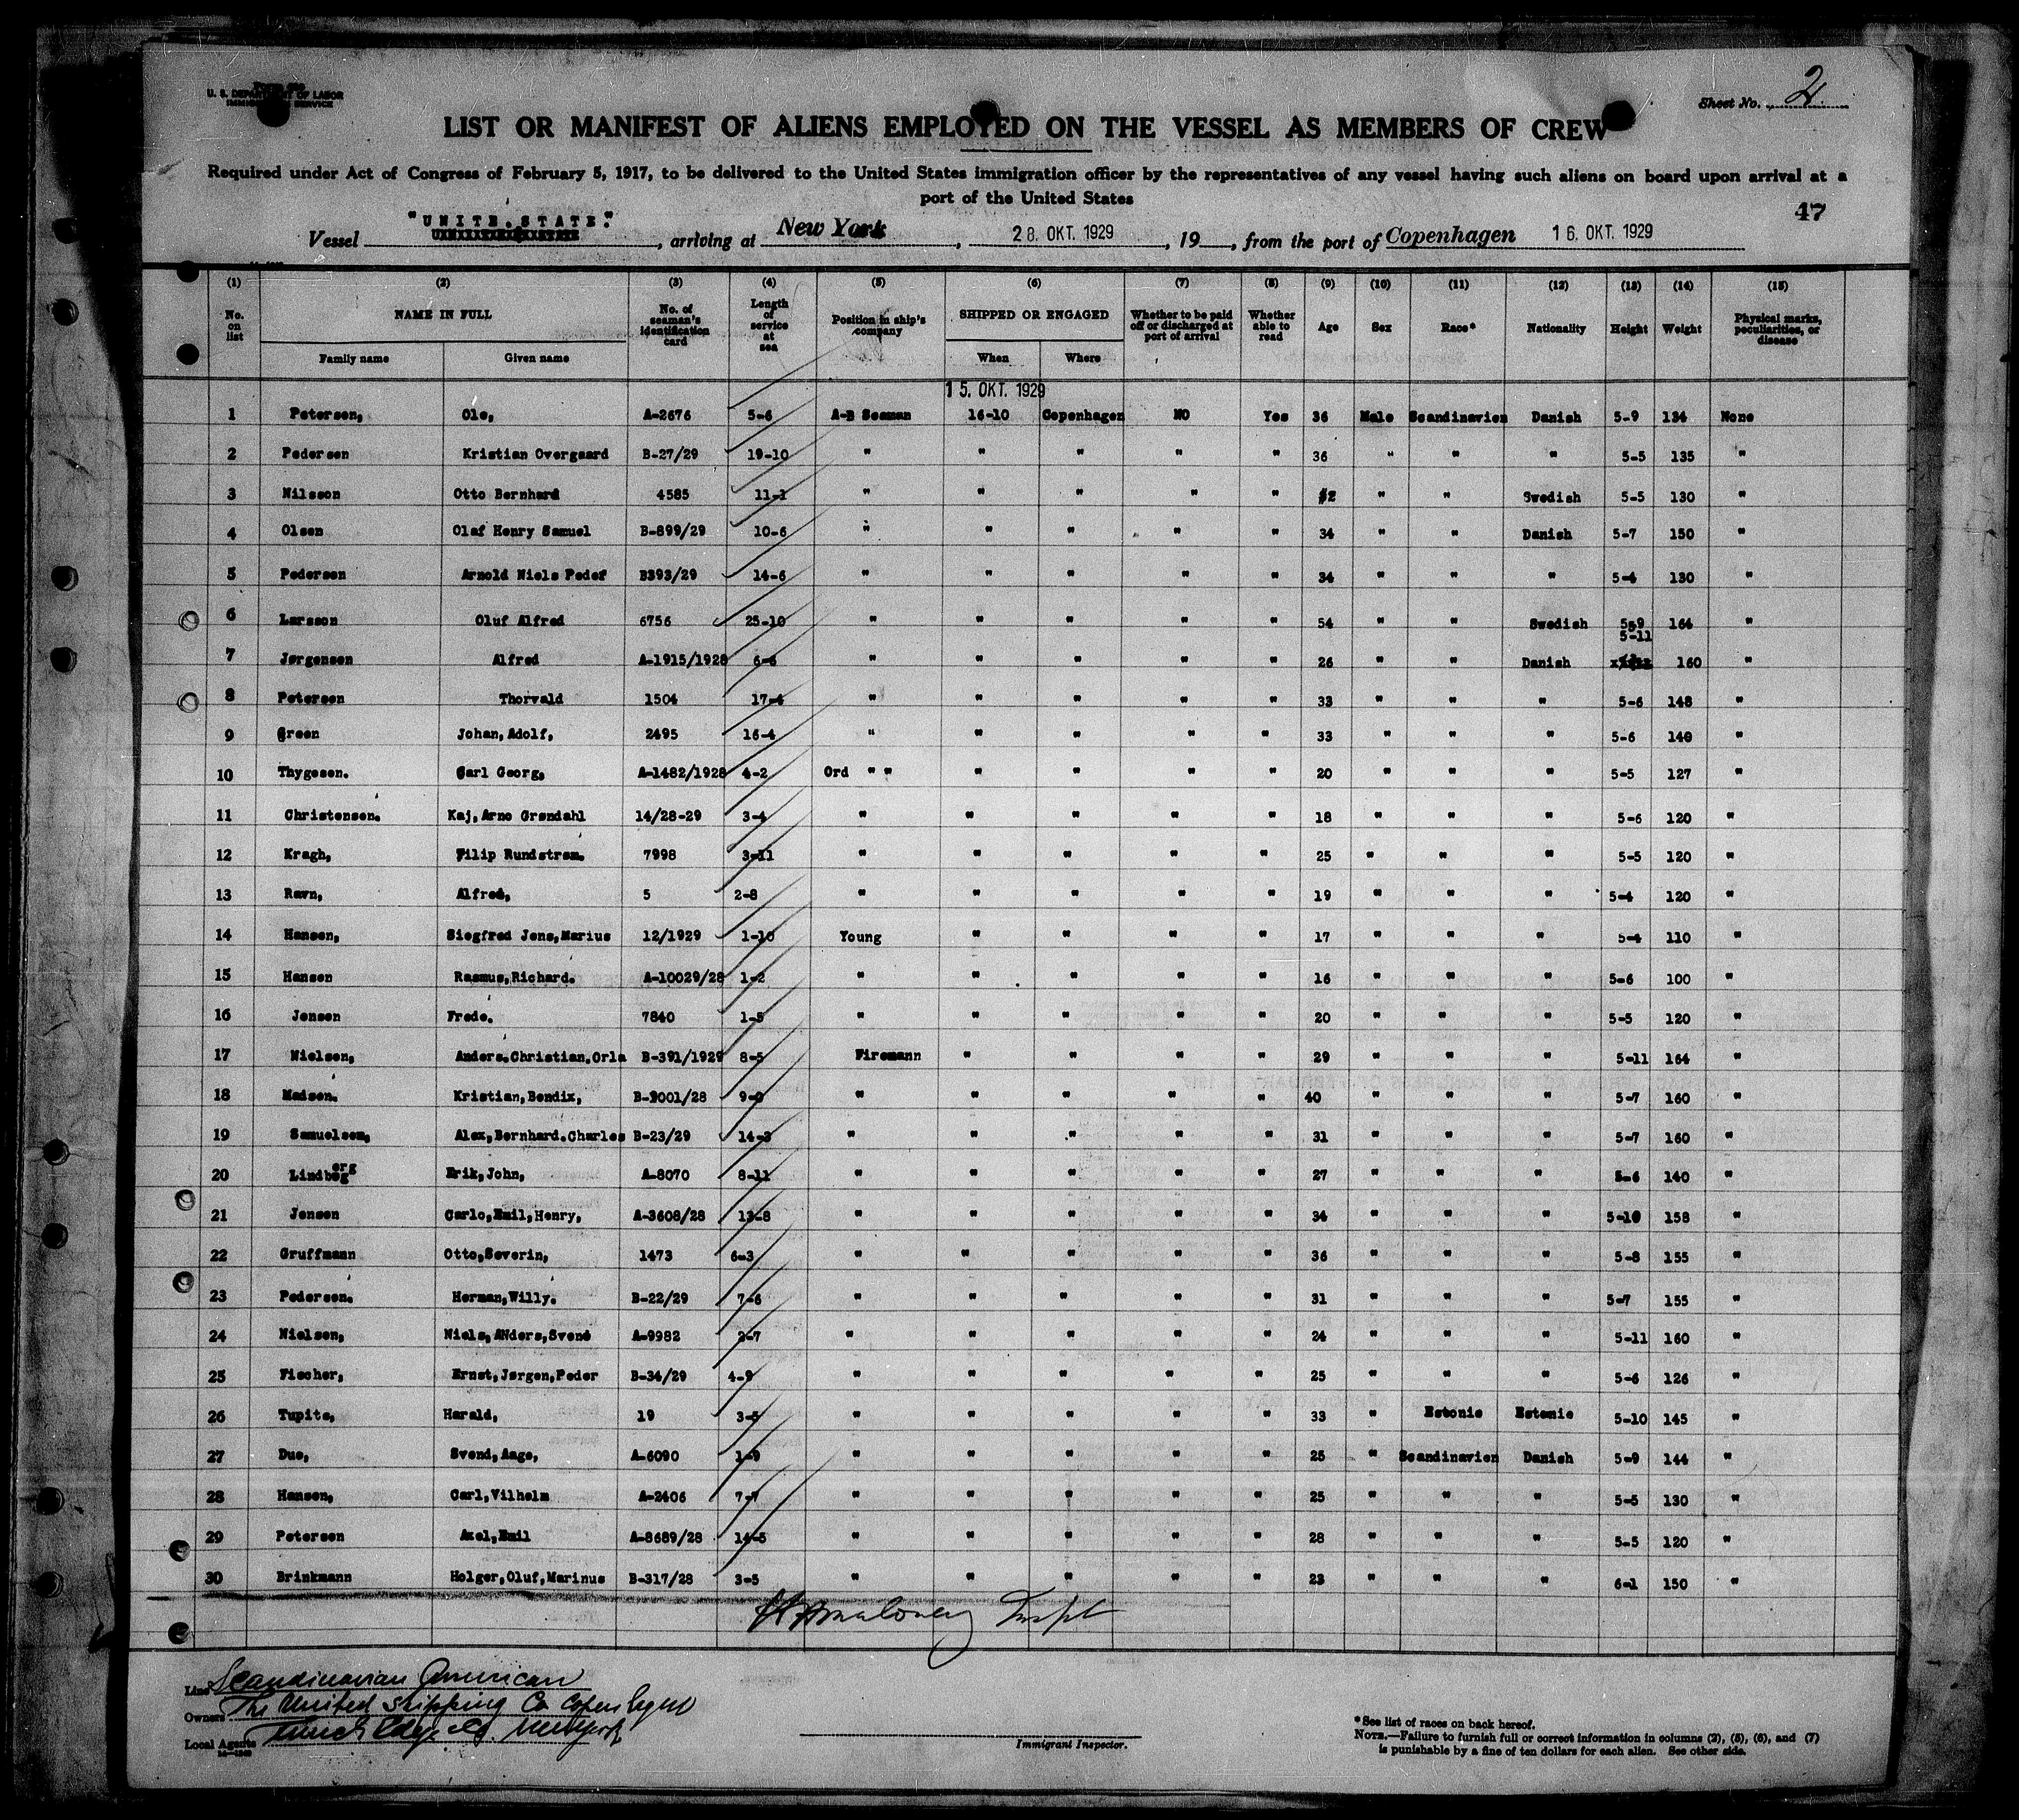 U. S. DEPARTMENT OF LABOR
IMMIGRATION SERVICE
Sheet No. 2
LIST OR MANIFEST OF ALIENS EMPLOYED ON THE VESSEL AS MEMBERS OF CREW
Required under Act of Congress of February 5, 1917, to be delivered to the United States immigration officer by the representatives of any vessel having such aliens on board upon arrival at a
port of the United States
47
Vessel "UNITE.STATE." , arriving at New York , 28. OKT. 1929 , 19 , from the port of Copenhagen 16. OKT. 1929
(1) (2) (3) (4) (5) (6) (7) (8) (9) (10) (11) (12) (13) (14) (15)
No. on list NAME IN FULL No. of seaman's identification card Length of service at sea Position in ship's company SHIPPED OR ENGAGED Whether to be paid off or discharged at port of arrival Whether able to read Age Sex Race* Nationality Height Weight Physical marks, peculiarities, or disease
Family name Given name When Where
15. OKT. 1929
1 Petersen, Ole, A-2676 5-6 A-B Seaman 16-10 Copenhagen NO Yes 36 Male Scandinavien Danish 5-9 134 None
2 Pedersen Kristian Overgaard B-27/29 19-10 " " " " " 36 " " " 5-5 135 "
3 Nilsson Otto Bernhard 4585 11-1 " " " " " " " Swedish 5-5 130 "
4 Olsen Olaf Henry Samuel B-899/29 10-6 " " " " " 34 " " Danish 5-7 150 "
5 Pedersen Arnold Niels Peder B393/29 14-6 " " " " " 34 " " " 5-4 130 "
6 Larsson Oluf Alfred 6756 25-10 " " " " " 54 " " Swedish 5-9 164 "
7 Jørgensen Alfred A-1915/1928 6-6 " " " " " 26 " " Danish 5-11 160 "
8 Petersen Thorvald 1504 17-4 " " " " " 33 " " " 5-6 148 "
9 Green Johan, Adolf, 2495 16-4 " " " " " 33 " " " 5-6 140 "
10 Thygesen. Carl Georg, A-1482/1928 4-2 Ord " " " " " " 20 " " " 5-5 127 "
11 Christensen. Kaj, Arno Grøndahl 14/28-29 3-4 " " " " " 18 " " " 5-6 120 "
12 Kragh, Filip Rundstrøm. 7998 3-11 " " " " " 25 " " " 5-5 120 "
13 Ravn, Alfred, 5 2-8 " " " " " 19 " " " 5-4 120 "
14 Hansen, Siegfred Jens, Marius 12/1929 1-10 Young " " " " 17 " " " 5-4 110 "
15 Hansen Rasmus, Richard. A-10029/28 1-2 " " " " " 16 " " " 5-6 100 "
16 Jensen Frede. 7840 1-5 " " " " " 20 " " " 5-5 120 "
17 Nielsen, Anders.Christian.Orla B-391/1929 8-5 Firemann " " " " 29 " " " 5-11 164 "
18 Madsen. Kristian, Bendix, 9-0 " " " " " 40 " " " 5-7 160 "
19 Samuelsen, Alex, Bernhard.Charles B-23/29 14-3 " " " " " 31 " " " 5-7 160 "
20 Lindberg Erik, John, A-8070 8-11 " " " " " 27 " " " 5-6 140 "
21 Jensen Carlo, Emil, Henry, A-3608/28 13-8 " " " " " 34 " " " 5-10 158 "
22 Gruffmann Otto, Severin, 1473 6-3 " " " " " 36 " " " 5-8 155 "
23 Pedersen. Herman, Willy. B-22/29 7-6 " " " " " 31 " " " 5-7 155 "
24 Nielsen, Niels, ANders, Svend A-9982 2-7 " " " " " 24 " " " 5-11 160 "
25 Fischer, Ernst, Jørgen, Peder B-34/29 4-9 " " " " " 25 " " " 5-6 126 "
26 Tupits, Harald, 19 3-5 " " " " " 33 " Estonie Estonie 5-10 145 "
27 Due, Svend, Aage, A-6090 1-9 " " " " " 25 " Scandinavien Danish 5-9 144 "
28 Hansen, Carl, Vilhelm A-2406 7-7 " " " " " 25 " " " 5-5 130 "
29 Petersen Axel, Emil A-8689/28 14-5 " " " " " 28 " " " 5-5 120 "
30 Brinkmann Holger, Oluf, Marinus B-317/28 3-5 " " " " " 23 " " " 6-1 150 "
Maloney Inspt
Line Scandinavian American
Owners The United Shipping Co Copenhagen
Local Agents New York
Immigrant Inspector.
*See list of races on back hereof.
NOTE.—Failure to furnish full or correct information in columns (2), (5), (6), and (7)
is punishable by a fine of ten dollars for each alien. See other side.